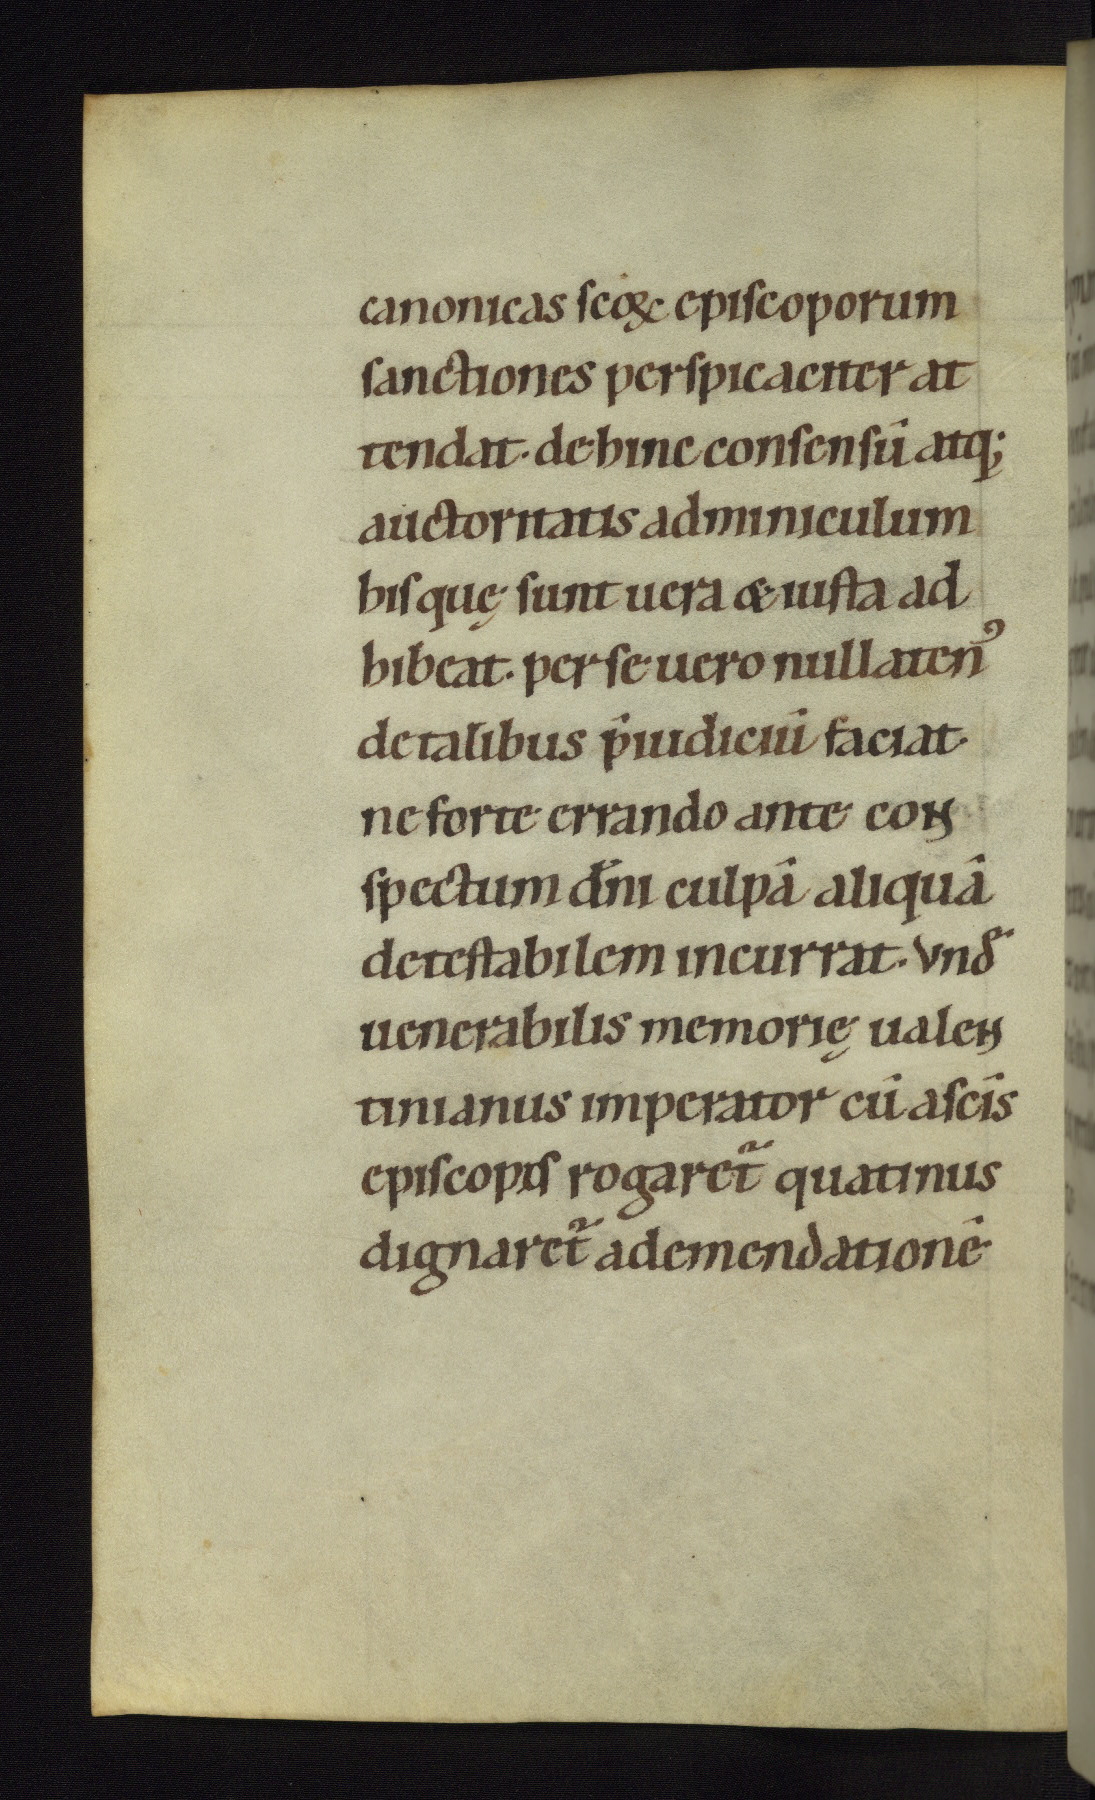 canonicas scoꝝ episcoporum
sanctiones perspicaciter at
tendat. dehinc consensū atq;
auctoritatis adminiculum
hisquę sunt uera & iusta ad
hibeat. per se uero nullaten᾽
de talibus p̄iudiciū faciat.
ne forte errando ante con
spectum dn̄i culpā aliquā
detestabilem incurrat. Vnđ
uenerabilis memorię ualen
tinianus imperator cū ascīs
episcopis rogaret᷑ quatinus
dignaret᷑ ademendationē